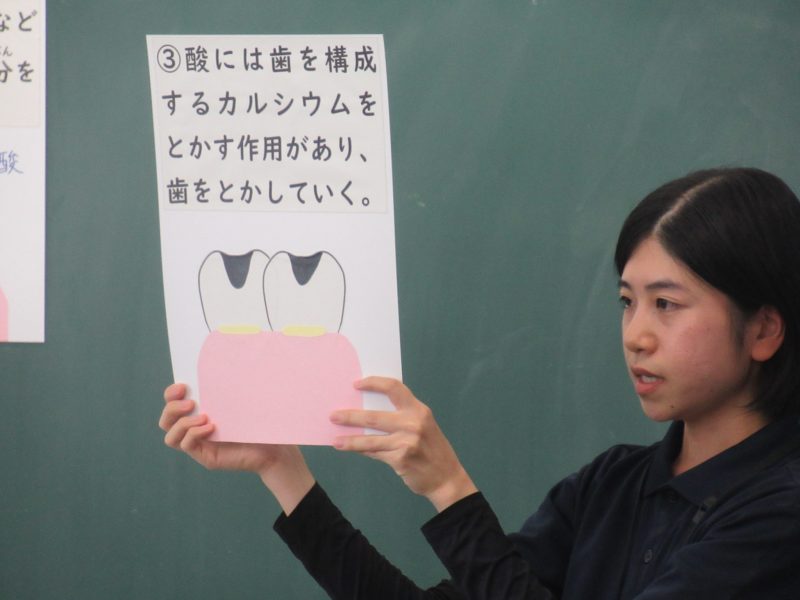 など
分を
酸
③酸には歯を構成
するカルシウムを
とかす作用があり、
歯をとかしていく。